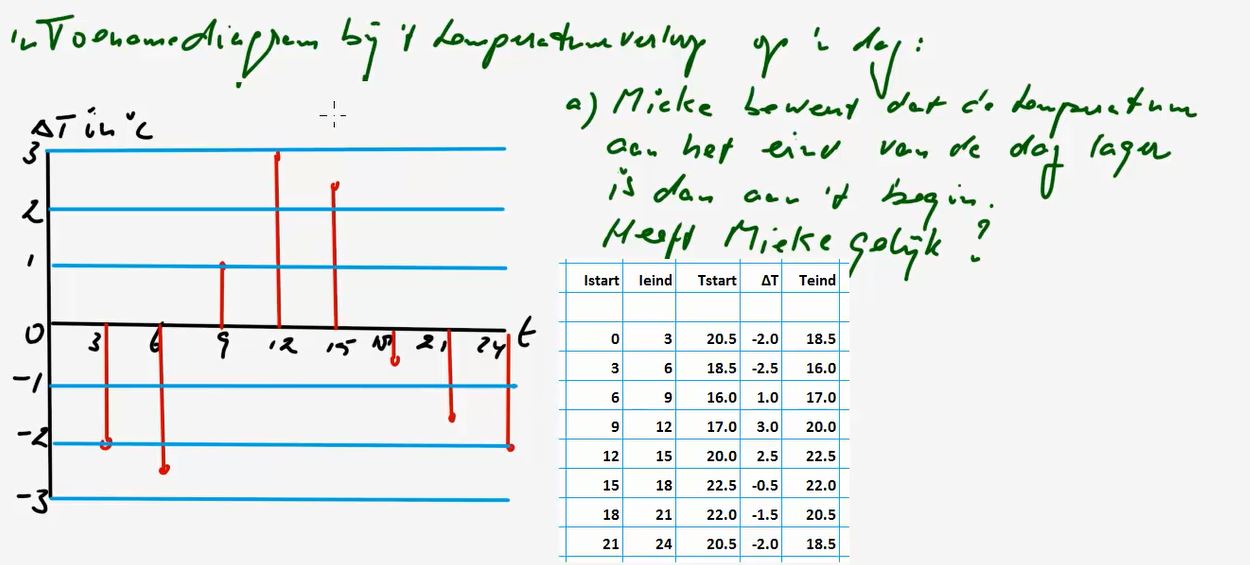 'n Toenamediagram bij 't temperatuurverloop op 'n dag:
a) Mieke beweert dat de temperatuur
aan het eind van de dag lager
is dan aan 't begin.
Heeft Mieke gelijk?
ΔT in °C
3
2
1
0
-1
-2
-3
3 6 9 12 15 18 21 24 t
Istart Ieind Tstart ΔT Teind
0 3 20.5 -2.0 18.5
3 6 18.5 -2.5 16.0
6 9 16.0 1.0 17.0
9 12 17.0 3.0 20.0
12 15 20.0 2.5 22.5
15 18 22.5 -0.5 22.0
18 21 22.0 -1.5 20.5
21 24 20.5 -2.0 18.5